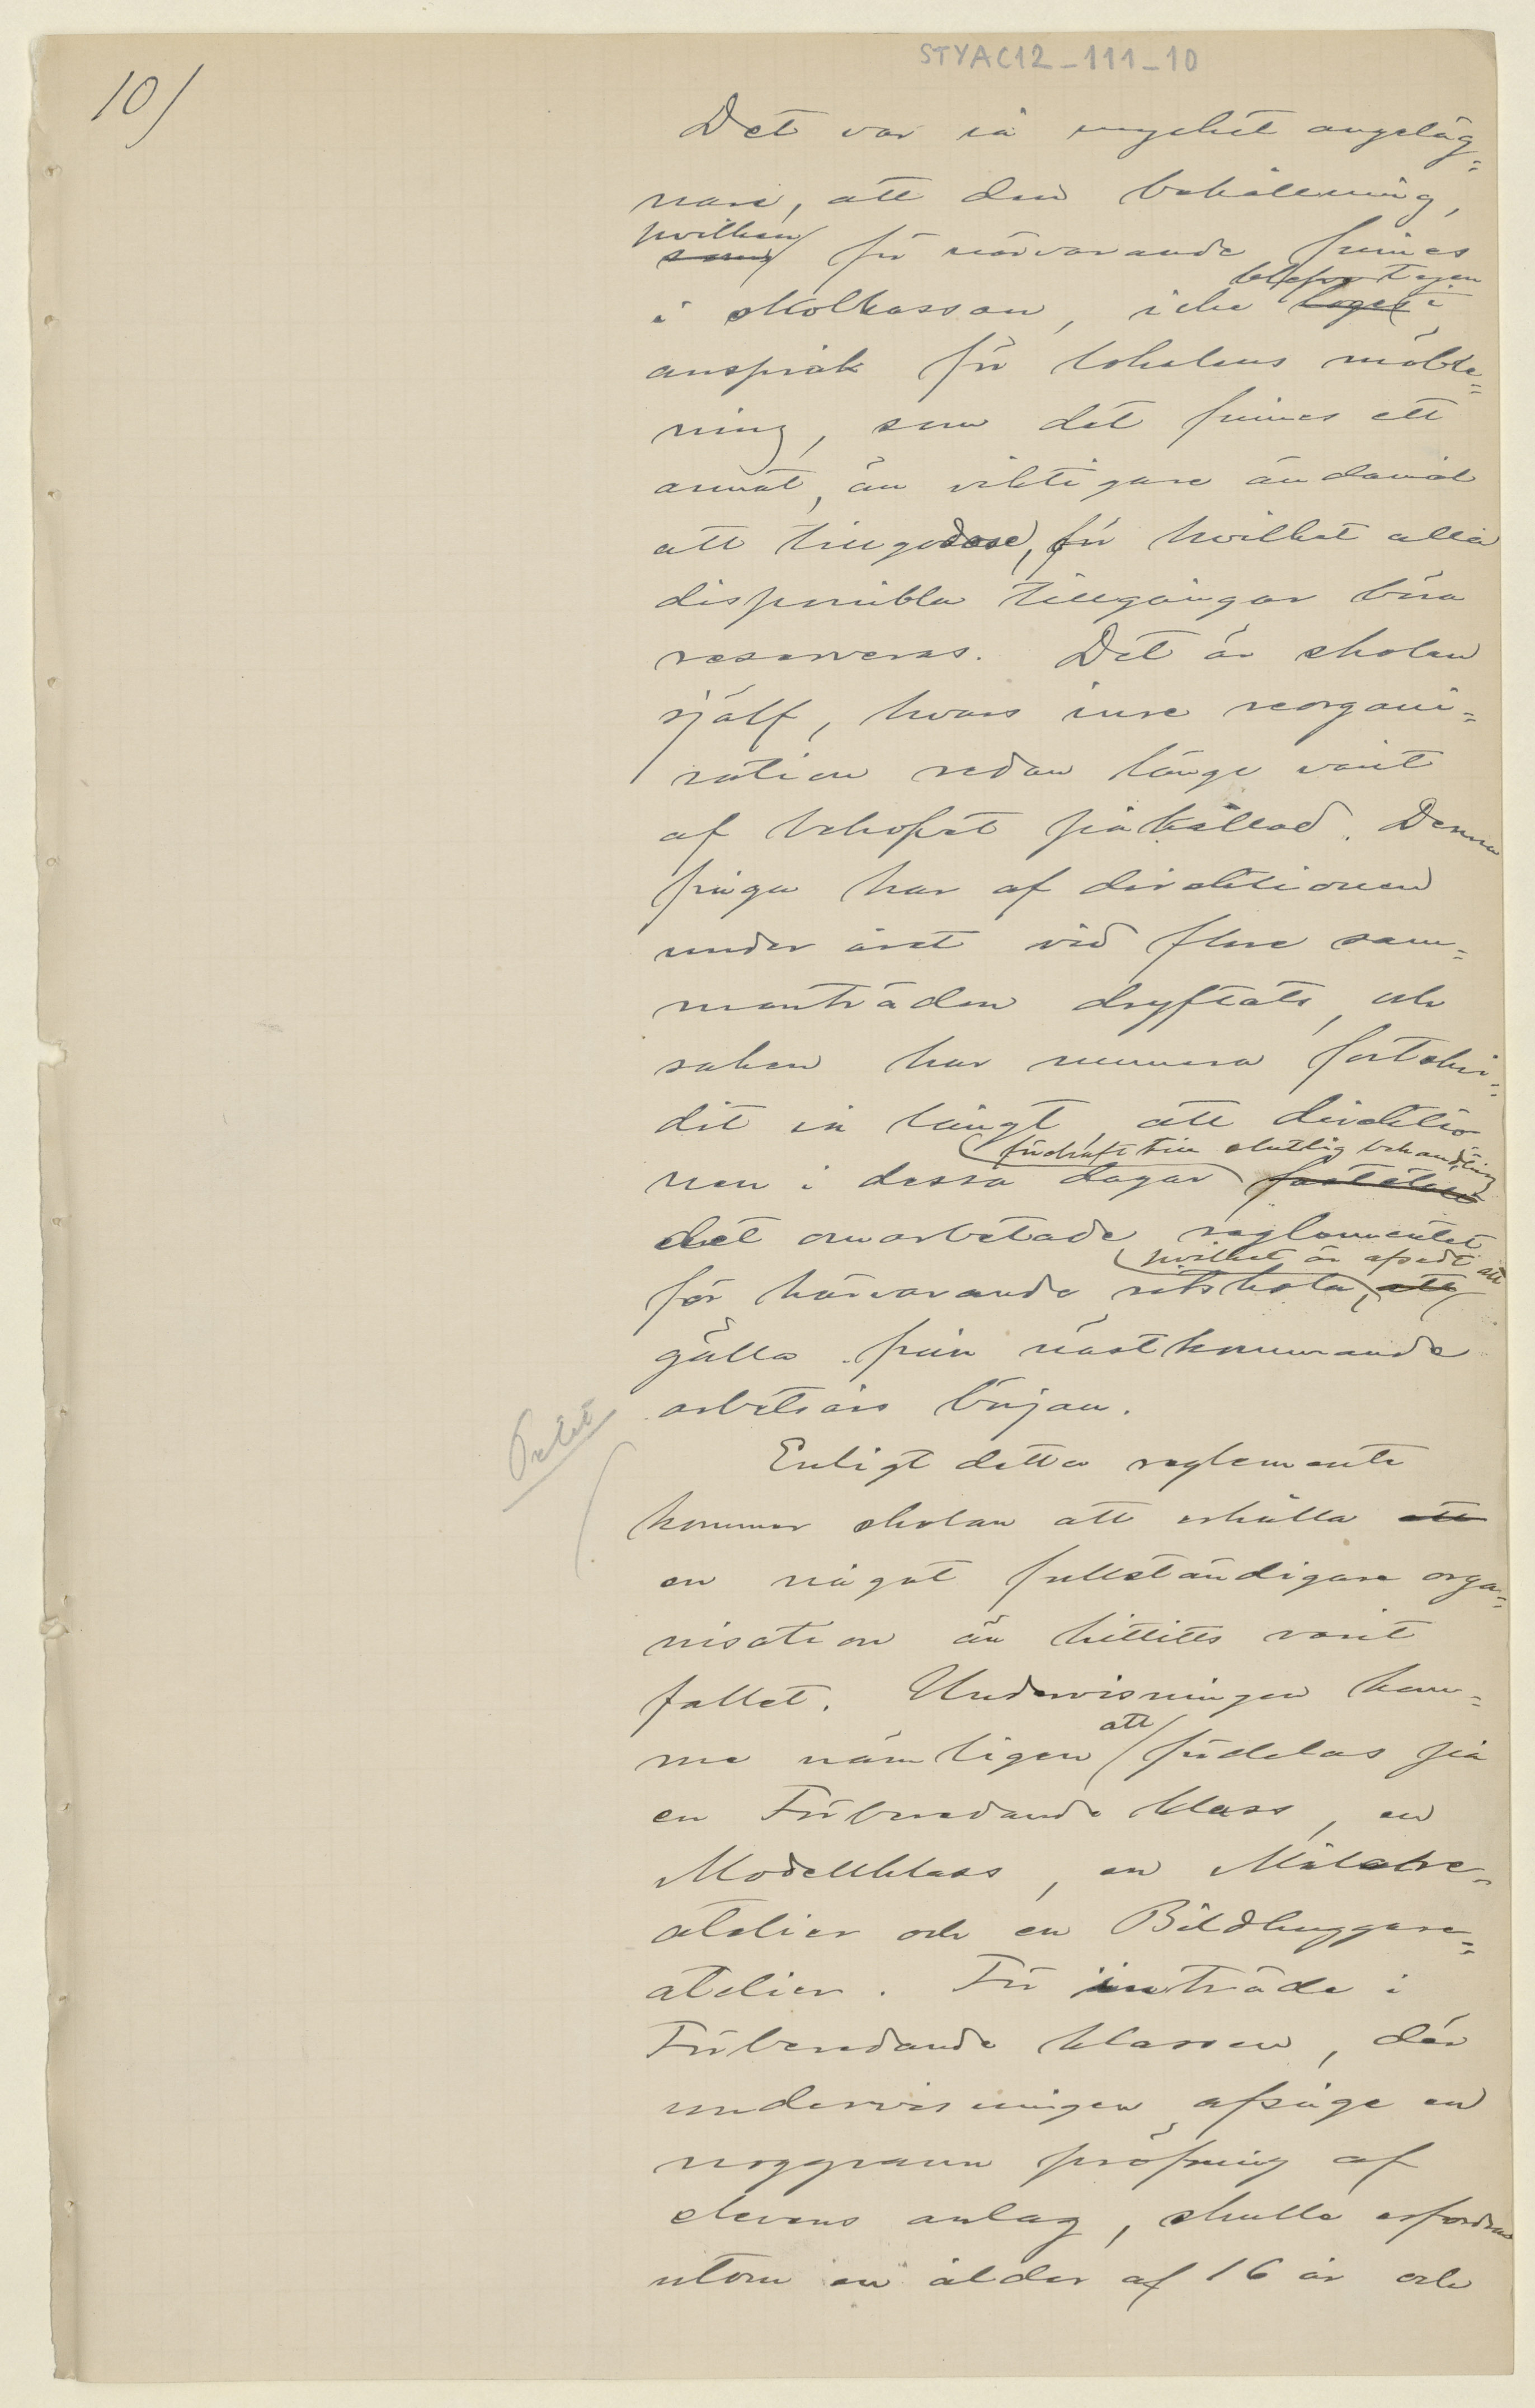 STYAC12_111_10
10)
Det var så mycket angeläg=
nare, att den behållning,
hvilken
som för närvarande finnes
blefve tagen
i skolkassan, icke toges i
anspråk för lokalens möble=
ring, som det finnes ett
annat, än viktigare ändamål
att tillgodose, för hvilket alla
disponibla tillgångar böra
reserveras. Det är skolan
själf, hvars inre reorgani=
sation redan länge varit
af behofvet påkallad. Denna
fråga har af direktionen
under året vid flere sam=
manträden dryftats, och
saken har numera fortskri=
dit så långt, att direktio
förehaft till slutlig behandling
nen i dessa dagar fastställt
det omarbetade reglementet
hvilket är afsedt att
för härvarande ritskola, att
gälla från nästkommande
arbetsårs början.
Enligt detta reglemente
kommer skolan att erhålla ett
en något fullständigare orga=
nisation än hittills varit
fallet. Undervisningen kom=
att
me nämligen fördelas på
en Förberedande klass, en
Modellklass, en Målare=
atelier och en Bildhuggare=
atelier. För inträde i
Förberedande klassen, där
undervisningen afsåge en
noggrann pröfning af
elevens anlag, skulle erfordras
utom en ålder af 16 år och